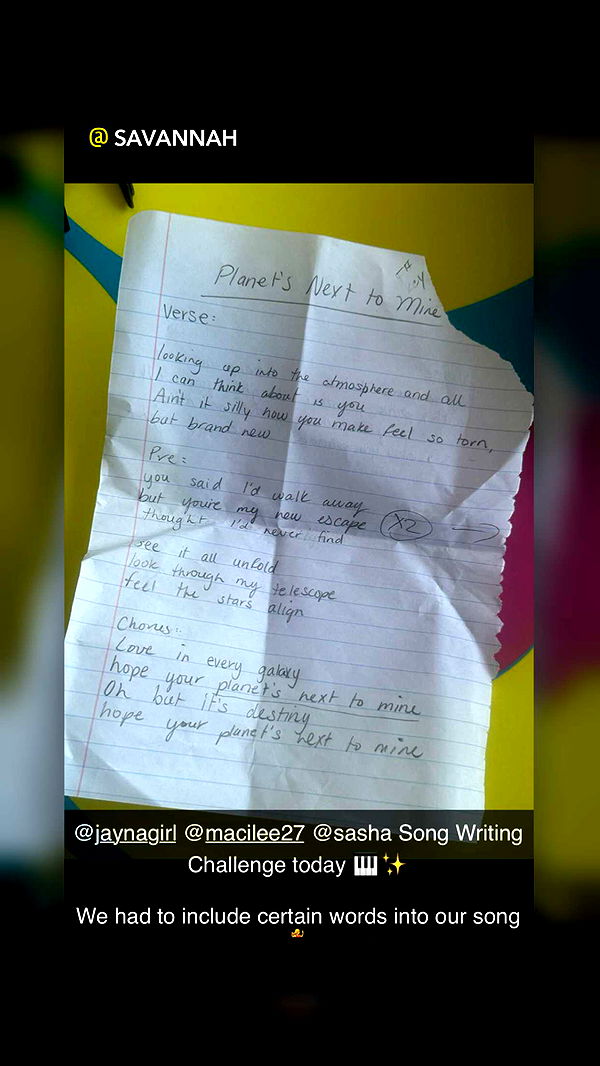 @ SAVANNAH
Planet's Next to Mine
Verse:
looking up into the atmosphere and all
I can think about is you
Aint it silly how you make feel so torn,
but brand new
Pre:
you said I'd walk away
but you're my new escape X2
thought I'd never find
see it all unfold
look through my telescope
feel the stars align
Chorus:
Love in every galaxy
hope your planet's next to mine
Oh but it's destiny
hope your planet's next to mine
@jaynagirl @macilee27 @sasha Song Writing
Challenge today 🎹✨
We had to include certain words into our song